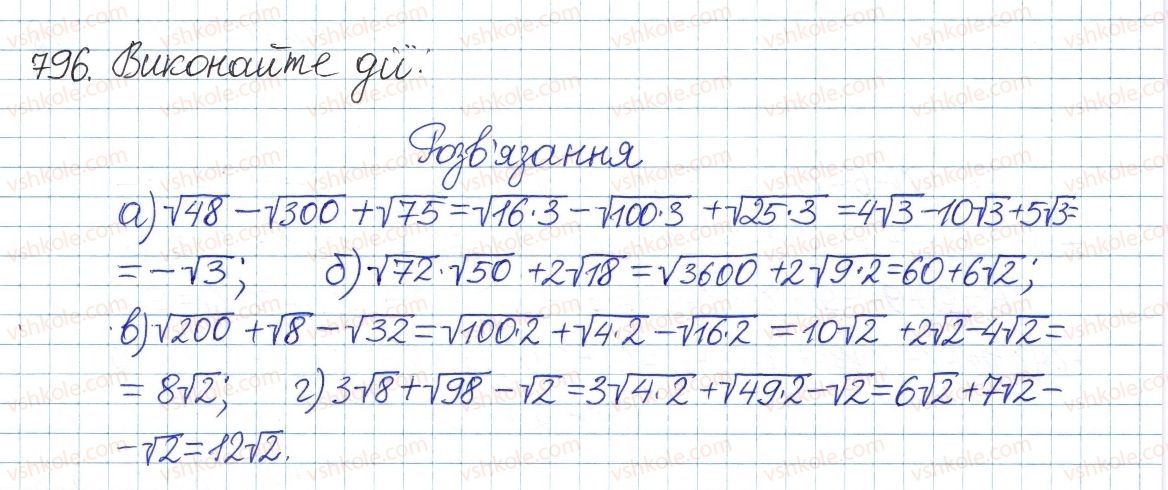 796. Виконайте дії:
Розв'язання
а) √48 − √300 + √75 = √16·3 − √100·3 + √25·3 = 4√3 − 10√3 + 5√3 =
= −√3; б) √72·√50 + 2√18 = √3600 + 2√9·2 = 60 + 6√2;
в) √200 + √8 − √32 = √100·2 + √4·2 − √16·2 = 10√2 + 2√2 − 4√2 =
= 8√2; г) 3√8 + √98 − √2 = 3√4·2 + √49·2 − √2 = 6√2 + 7√2 −
− √2 = 12√2.
vshkole.com